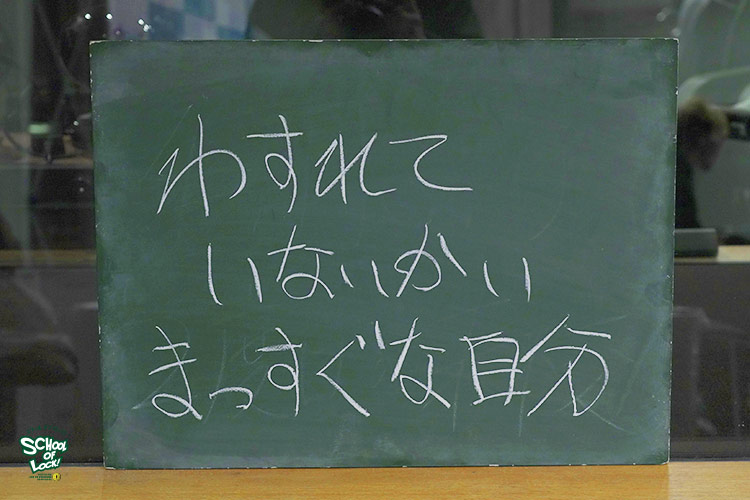 わすれて
いないかい
まっすぐな自分
SCHOOL
OF
LOCK!